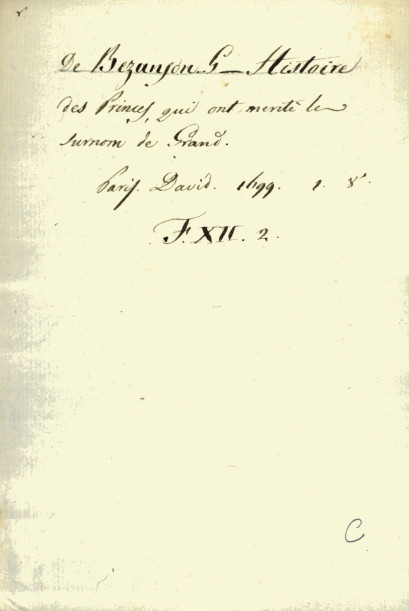 De Bezanson G_ Histoire
des Princes, qui ont merité le
surnom de Grand.
Paris. David. 1699. 1. 8°.
F. XII. 2.
C